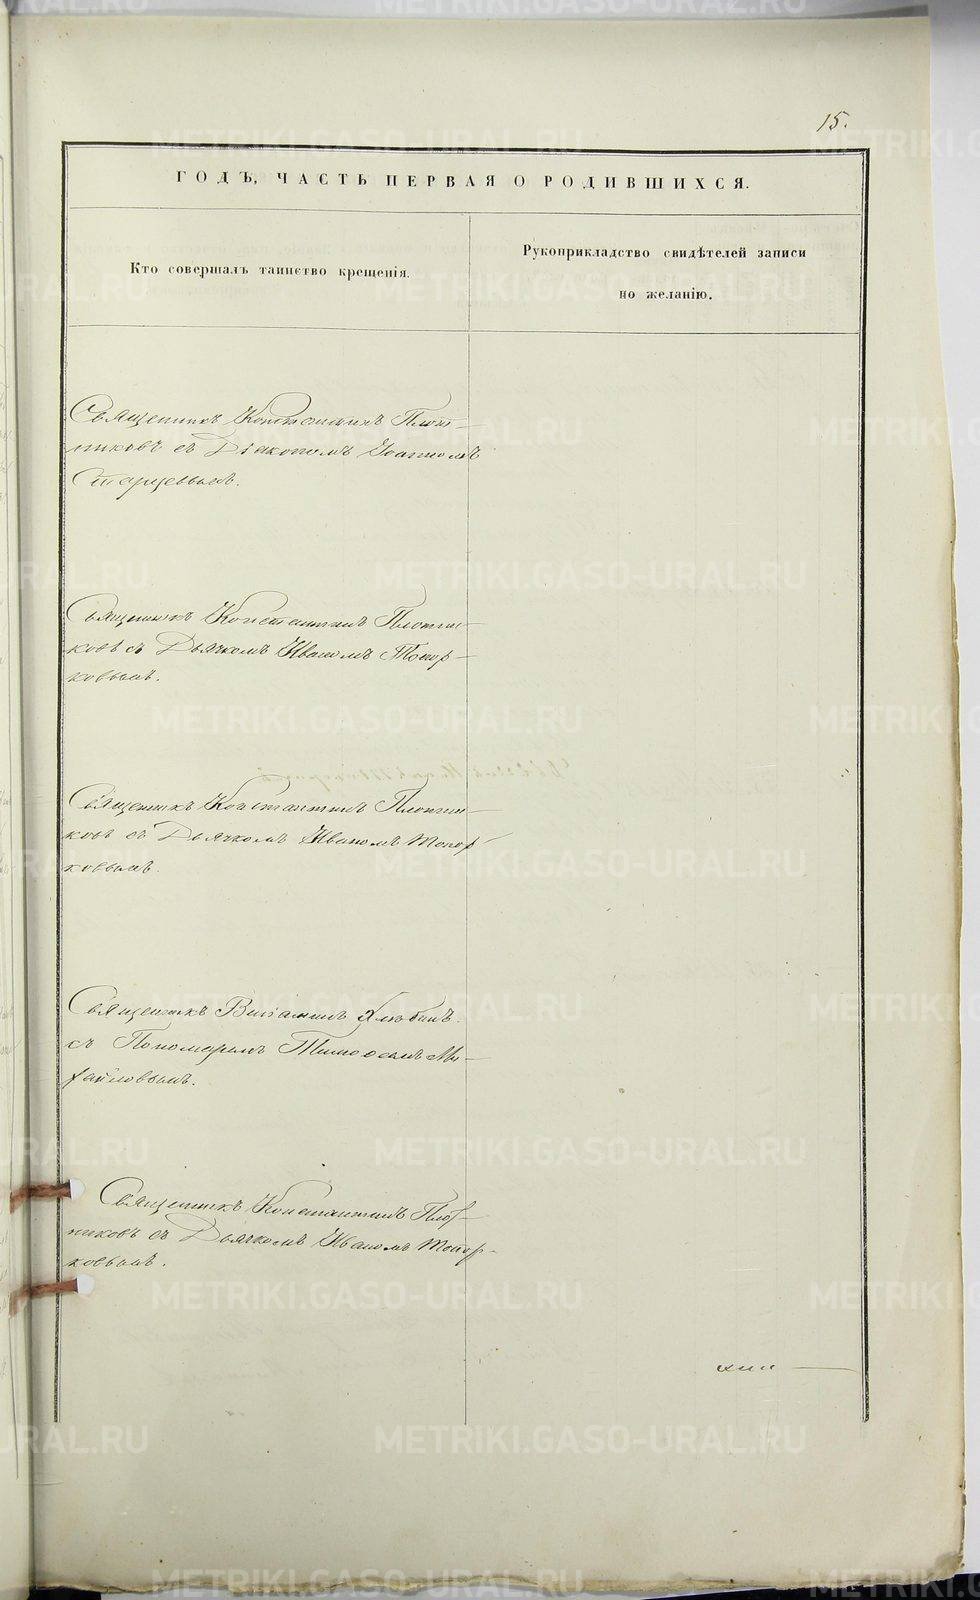 15.
ГОДЪ, ЧАСТЬ ПЕРВАЯ О РОДИВШИХСЯ.
Кто совершалъ таинство крещенія.
Рукоприкладство свидѣтелей записи
по желанію.
Священникъ Константинъ Плот-
никовъ съ Діакономъ Іоанномъ
Старцевымъ.
Священникъ Константинъ Плотни-
ковъ съ Дьячкомъ Иваномъ Топор-
ковымъ.
Священникъ Константинъ Плотни-
ковъ съ Дьячкомъ Иваномъ Топор-
ковымъ.
Священникъ Виніаминъ Хлюбинъ
съ Пономаремъ Тимоѳеемъ Ми-
хайловымъ.
Священникъ Константинъ Плот-
никовъ съ Дьячкомъ Иваномъ Топор-
ковымъ.
METRIKI.GASO-URAL.RU